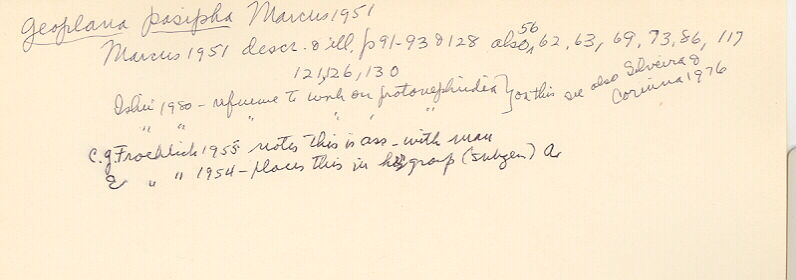 Geoplana pasipha Marcus 1951
Marcus 1951 descr. & ill. p 91-93 & 128 also 56, 62, 63, 69, 73, 86, 117
121, 126, 130
Ishii 1980 - reference to work on protonephridia } on this see also Silveira &
" " " " " Corinna 1976
C.g. Froehlich 1955 notes this is ass. with man
& " " 1954 - places this in his group (subgen) A